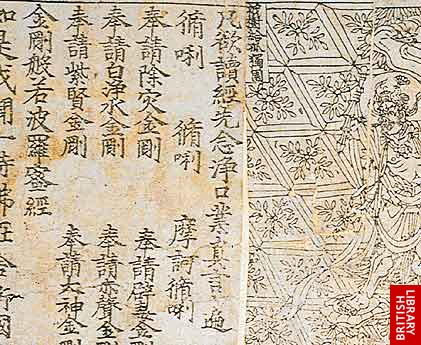 祇樹給孤獨園
凡欲讀經先念淨口業真言遍
脩唎 脩唎 摩訶脩唎
奉請除灾金剛 奉請辟毒金剛
奉請白淨水金剛 奉請赤聲金剛
奉請紫賢金剛 奉請大神金剛
金剛般若波羅蜜經
如是我聞一時佛在舍衛國
BRITISH
LIBRARY